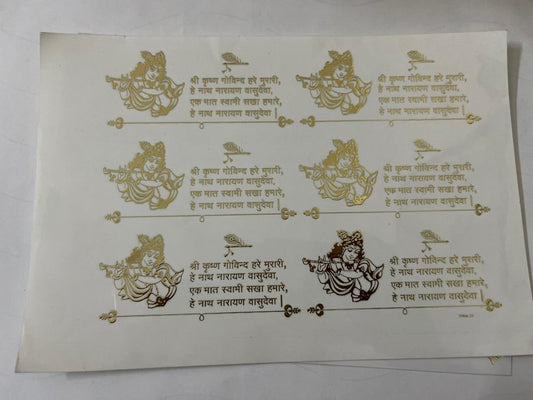 श्री कृष्ण गोविन्द हरे मुरारी,
हे नाथ नारायण वासुदेवा,
एक मात स्वामी सखा हमारे,
हे नाथ नारायण वासुदेवा
श्री कृष्ण गोविन्द हरे मुरारी,
हे नाथ नारायण वासुदेवा,
एक मात स्वामी सखा हमारे,
हे नाथ नारायण वासुदेवा
श्री कृष्ण गोविन्द हरे मुरारी,
हे नाथ नारायण वासुदेवा,
एक मात स्वामी सखा हमारे,
हे नाथ नारायण वासुदेवा
श्री कृष्ण गोविन्द हरे मुरारी,
हे नाथ नारायण वासुदेवा,
एक मात स्वामी सखा हमारे,
हे नाथ नारायण वासुदेवा
श्री कृष्ण गोविन्द हरे मुरारी,
हे नाथ नारायण वासुदेवा,
एक मात स्वामी सखा हमारे,
हे नाथ नारायण वासुदेवा
श्री कृष्ण गोविन्द हरे मुरारी,
हे नाथ नारायण वासुदेवा,
एक मात स्वामी सखा हमारे,
हे नाथ नारायण वासुदेवा